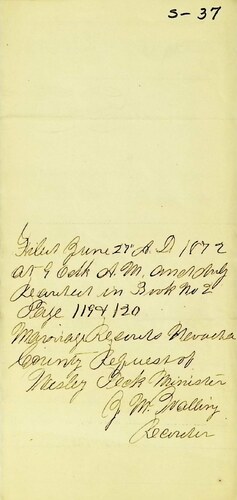 S-37
Filed June 27th A.D. 1872
at 9 O'clk A.M. and duly
Recorded in Book No 2
Page 119 & 120
Marriage Records Nevada
County Request of
Wesley Peck Minister
Recorder